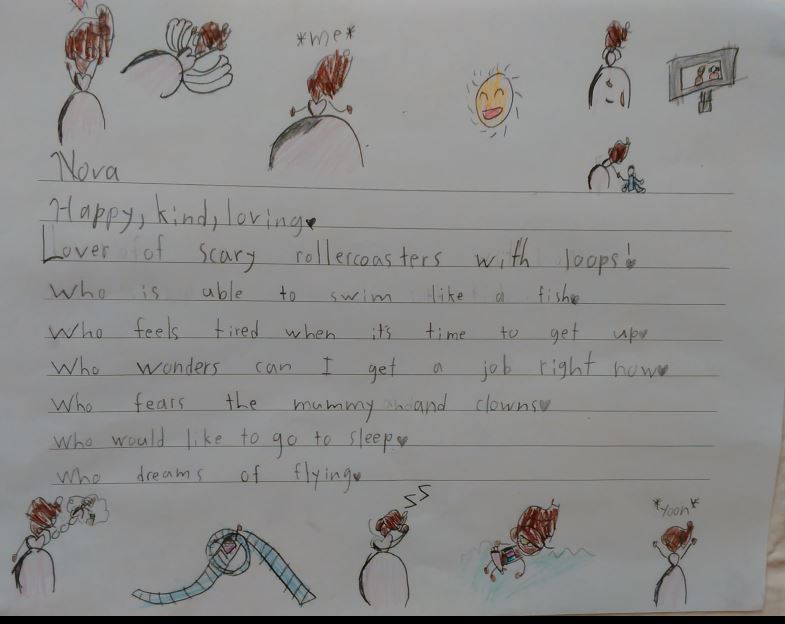 *me*
Nova
Happy, kind, loving♥
Lover of scary rollercoasters with loops!
Who is able to swim like a fish♥
Who feels tired when it's time to get up♥
Who wonders can I get a job right now♥
Who fears the mummy and and clowns♥
who would like to go to sleep♥
Who dreams of flying♥
*Yoon*